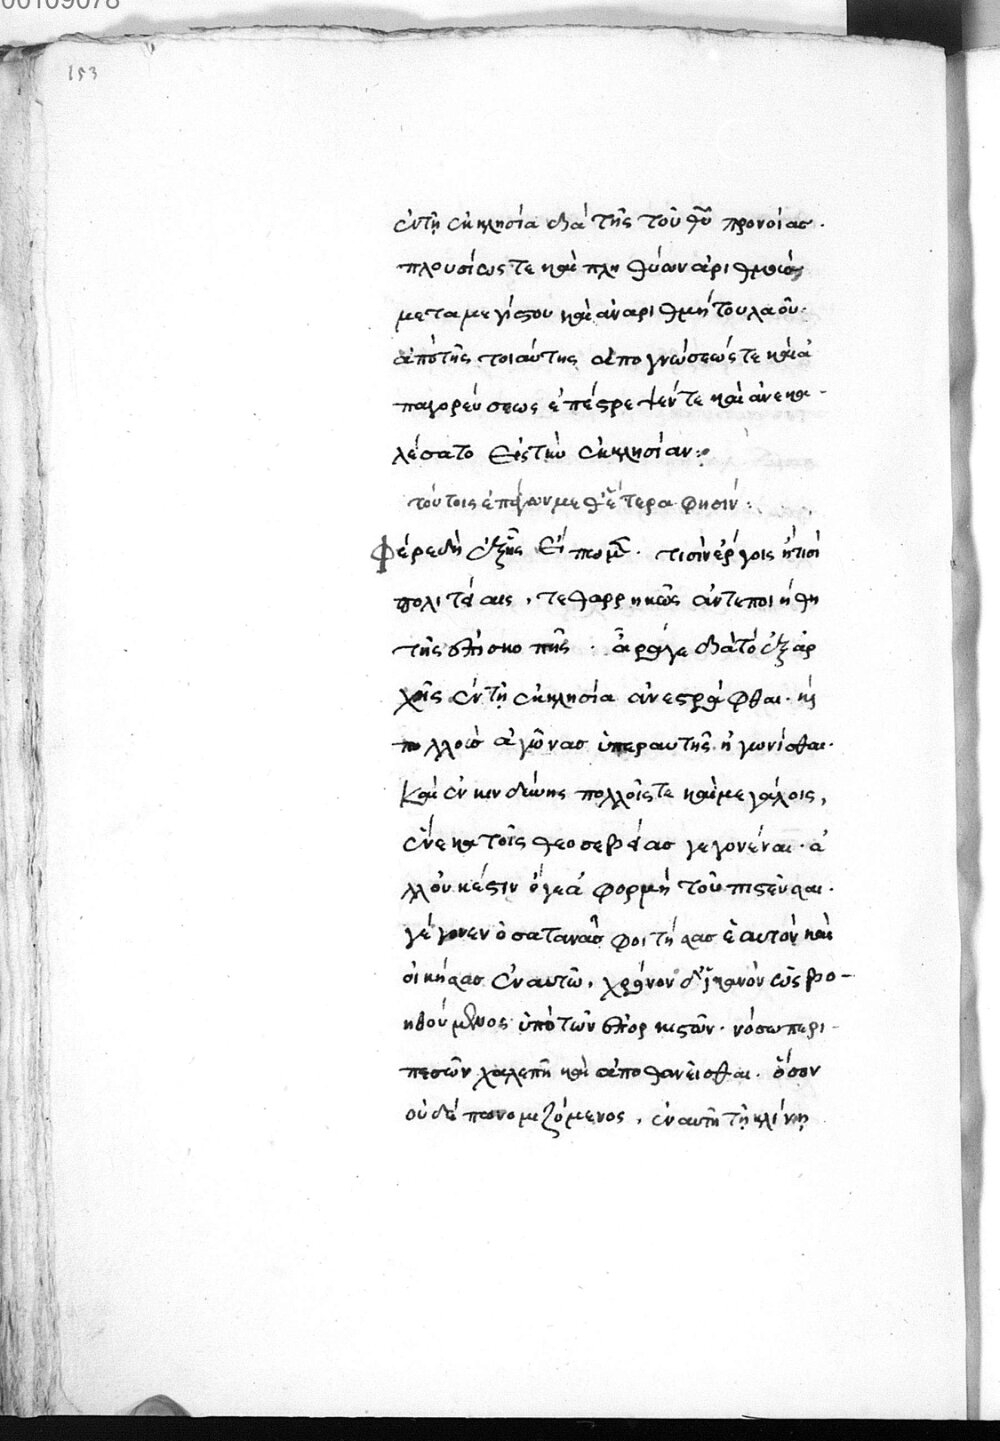 00109078
153
ἐν τῇ ἐκκλησία διὰ τῆς τοῦ θῦ προνοίας.
πλουσίως τε καὶ πληθύων ἀριθμιὸς
μετα μεγίστου καὶ ἀναριθμήτου λαοῦ.
ἀπὸ τῆς τοιαύτης ἀπογνώσεώς τε καὶ ἀ
παγορεύσεως ἐπέστρεψέν τε καὶ ἀνεκα-
λέσατο εἰς τὴν ἐκκλησίαν:
τούτοις ἐπάγων μεθ' ἕτερα φησίν:
Φέρε δὴ ἑξῆς εἴπομεν. τίσιν ἔργοις ἢ τίσι
πολιτείαις, τεθαρρηκὼς ἀντεποιήθη
τῆς ἐπισκοπῆς. ἆρά γε διὰ τὸ ἐξ ἀρ
χῆς ἐν τῇ ἐκκλησία ἀνεστράφθαι. καὶ
πολλοὺσ ἀγῶνασ ὑπεραυτῆς ἠγωνίσθαι.
Καὶ ἐν κινδύνης πολλοῖς τε καὶ μεγάλοις,
ἕνεκα τοῖς θεοσεβείασ γεγονέναι. ἀ
λλ' οὐκ έστιν ὅγε ἀφορμὴ τοῦ πιστεῦσαι.
γέγονεν ὁ σατανᾶσ φοιτήσασ ἑαυτὸν καὶ
οἰκήσασ ἐν αυτῶ, χρόνον ἱκανὸν ὡς βο-
ηθούμενος ὑπὸ τῶν ἐπορκιστῶν. νόσω περι-
πεσὼν χαλεπῆ καὶ ἀποθανεῖσθαι. ὅσον
οὐδέπω νομιζόμενος, ἐν αυτῆ τῆ κλίνῃ